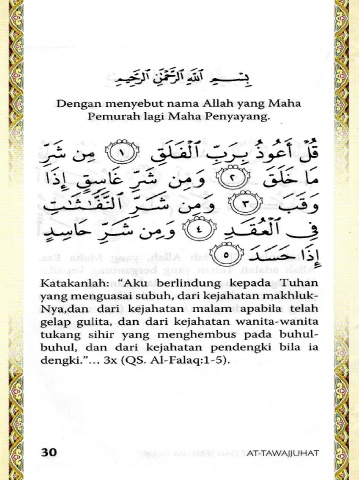 بِسْمِ اللَّهِ الرَّحْمَٰنِ الرَّحِيمِ
Dengan menyebut nama Allah yang Maha
Pemurah lagi Maha Penyayang.
قُلْ أَعُوذُ بِرَبِّ الْفَلَقِ ١ مِن شَرِّ
مَا خَلَقَ ٢ وَمِن شَرِّ غَاسِقٍ إِذَا
وَقَبَ ٣ وَمِن شَرِّ النَّفَّاثَاتِ
فِي الْعُقَدِ ٤ وَمِن شَرِّ حَاسِدٍ
إِذَا حَسَدَ ٥
Katakanlah: “Aku berlindung kepada Tuhan
yang menguasai subuh, dari kejahatan makhluk-
Nya,dan dari kejahatan malam apabila telah
gelap gulita, dan dari kejahatan wanita-wanita
tukang sihir yang menghembus pada buhul-
buhul, dan dari kejahatan pendengki bila ia
dengki.”... 3x (QS. Al-Falaq:1-5).
30 AT-TAWAJJUHAT